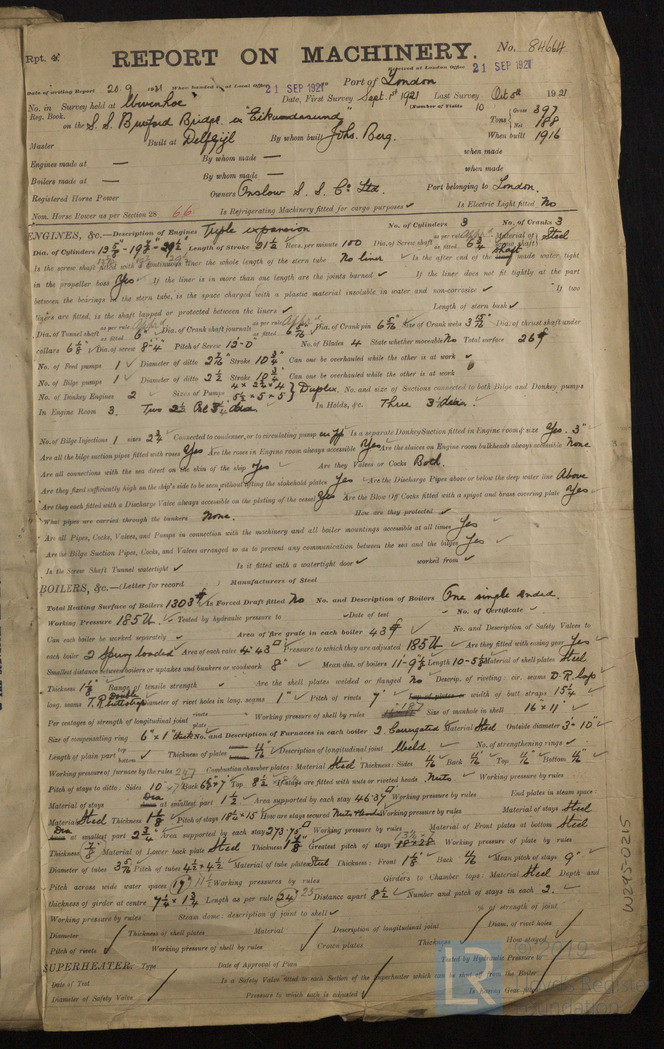 Rpt. 4.
REPORT ON MACHINERY.
No. 84664
Received at London Office 21 SEP 1921
Date of writing Report 20.9.1921 When handed in at Local Office 21 SEP 1921 Port of London
No. in Survey held at Wivenhoe Date, First Survey Sept. 1st 1921 Last Survey Oct 5th 1921
Reg. Book. (Number of Visits 10
on the S.S. Burford Bridge. ex "Eikundasund" Tons { Gross 397 Net 188
Master Built at Delfzijl By whom built Johs. Berg. When built 1916
Engines made at — By whom made — when made
Boilers made at — By whom made — when made
Registered Horse Power Owners Onslow S. S. Co. Ltd. Port belonging to London.
Nom. Horse Power as per Section 28 66 Is Refrigerating Machinery fitted for cargo purposes ✓ Is Electric Light fitted No
ENGINES, &c.—Description of Engines Triple expansion No. of Cylinders 3 No. of Cranks 3
Length of Stroke 21½ Revs. per minute 100 Dia. of Screw shaft as fitted 6¾ Material of screw shaft Steel
Is the screw shaft fitted with a continuous liner the whole length of the stern tube No liner ✓ Is the after end of the made water tight
in the propeller boss Yes If the liner is in more than one length are the joints burned ✓ If the liner does not fit tightly at the part
between the bearings in the stern tube, is the space charged with a plastic material insoluble in water and non-corrosive ✓ If two
liners are fitted, is the shaft lapped or protected between the liners ✓ Length of stern bush ✓
Dia. of Tunnel shaft as fitted 6" Dia. of Crank shaft journals Dia. of Crank pin Size of Crank webs Dia. of thrust shaft under
collars Dia. of screw 8'-4" Pitch of Screw 12'-0" No. of Blades 4 State whether moveable No Total surface 26
No. of Feed pumps 1 ✓ Diameter of ditto Stroke 10¾" Can one be overhauled while the other is at work ✓
No. of Bilge pumps 1 Diameter of ditto 2½ Stroke 10¾" Can one be overhauled while the other is at work ✓
No. of Donkey Engines 2 Sizes of Pumps 5½ × 5 × 5 } Duplex No. and size of Suctions connected to both Bilge and Donkey pumps
In Engine Room 3. Two In Holds, &c. Three 3" dia.
No. of Bilge Injections 1 sizes 2¾ Connected to condenser, or to circulating pump Is a separate Donkey Suction fitted in Engine room & size Yes. 3"
Are all the bilge suction pipes fitted with roses Yes Are the roses in Engine room always accessible Yes Are the sluices on Engine room bulkheads always accessible None
Are all connections with the sea direct on the skin of the ship Yes Are they Valves or Cocks Both.
Are they fixed sufficiently high on the ship's side to be seen without lifting the stokehold plates Yes Are the Discharge Pipes above or below the deep water line Above
Are they each fitted with a Discharge Valve always accessible on the plating of the vessel Yes Are the Blow Off Cocks fitted with a spigot and brass covering plate Yes
What pipes are carried through the bunkers None. How are they protected ✓
Are all Pipes, Cocks, Valves, and Pumps in connection with the machinery and all boiler mountings accessible at all times Yes
Are the Bilge Suction Pipes, Cocks, and Valves arranged so as to prevent any communication between the sea and the bilges Yes
Is the Screw Shaft Tunnel watertight ✓ Is it fitted with a watertight door ✓ worked from ✓
BOILERS, &c.—(Letter for record Manufacturers of Steel
Total Heating Surface of Boilers 1303 Is Forced Draft fitted No No. and Description of Boilers One single ended.
Working Pressure 185 lb. Tested by hydraulic pressure to Date of test No. of Certificate
Can each boiler be worked separately ✓ Area of fire grate in each boiler 43 No. and Description of Safety Valves to
each boiler 2 Spring loaded Area of each valve 4.43 Pressure to which they are adjusted 185 lb Are they fitted with easing gear Yes
Smallest distance between boilers or uptakes and bunkers or woodwork 8" Mean dia. of boilers 11-9½ Length 10-5½ Material of shell plates Steel
Thickness Range of tensile strength ✓ Are the shell plates welded or flanged No Descrip. of riveting: cir. seams D.R. lap
long. seams T.R. Double butt strap Diameter of rivet holes in long. seams 1" ✓ Pitch of rivets 7" width of butt straps 15¼
Per centages of strength of longitudinal joint Working pressure of shell by rules Size of manhole in shell 16 × 11
Size of compensating ring 6" × 1" thick No. and Description of Furnaces in each boiler 2 Corrugated Material Steel Outside diameter 3'-10"
Length of plain part Thickness of plates Description of longitudinal joint Weld. No. of strengthening rings
Working pressure of furnace by the rules 247 Combustion chamber plates: Material Steel Thickness: Sides Back Top Bottom
Pitch of stays to ditto: Sides 10 × 7 Back Top 8½ If stays are fitted with nuts or riveted heads Nuts Working pressure by rules
Material of stays at smallest part 1½ Area supported by each stay 46.37 Working pressure by rules End plates in steam space:
Material Steel Thickness Pitch of stays 18½ × 15 How are stays secured Nuts & Working pressure by rules Material of stays Steel
Dia at smallest part 2¾ Area supported by each stay 273.75 Working pressure by rules Material of Front plates at bottom Steel
Thickness Material of Lower back plate Steel Thickness Greatest pitch of stays Working pressure of plate by rules
Diameter of tubes Pitch of tubes 4½ × 4½ Material of tube plates Steel Thickness: Front Back Mean pitch of stays 9"
Pitch across wide water spaces Working pressures by rules Girders to Chamber tops: Material Steel Depth and
thickness of girder at centre Length as per rule Distance apart 8½ Number and pitch of stays in each 2.
Working pressure by rules Steam dome: description of joint to shell ✓ % of strength of joint
Diameter Thickness of shell plates Material Description of longitudinal joint Diam. of rivet holes
Pitch of rivets Working pressure of shell by rules Crown plates Thickness How stayed
SUPERHEATER. Type Date of Approval of Plan Tested by Hydraulic Pressure to
Date of Test Is a Safety Valve fitted to each Section of the Superheater which can be shut off from the Boiler
Diameter of Safety Valve Pressure to which each is adjusted Is Easing Gear
W295-0215
LR
© 2019
Lloyd's Register
Foundation